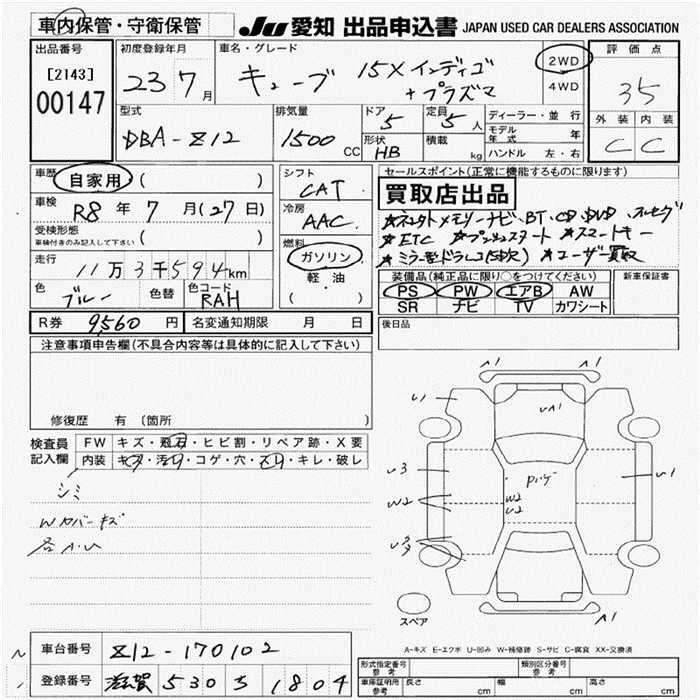 車内保管・守衛保管
JU 愛知 出品申込書 JAPAN USED CAR DEALERS ASSOCIATION
出品番号
[2143]
00147
初度登録年月
23 7月
車名・グレード
キューブ 15X インディゴ
+プラズマ
2WD
4WD
評価点
35
外装 内装
C C
型式
DBA-Z12
排気量
1500 CC
ドア
5
定員
5人
形状
HB
積載
kg
ディーラー・並行
モデル年式 年
ハンドル 左・右
車歴
自家用 ( )
車検
R8年 7月(27日)
受検形態
車検付きのみ記入して下さい ( )
走行
11万3千594km
色
ブルー
色替
色コード
RAH
シフト
CAT
冷房
AAC
燃料
ガソリン
軽・油
( )
セールスポイント(正常に機能するものに限ります)
買取店出品
★ETC ★プッシュスタート ★スマートキー
★ユーザー買取
装備品(純正品に限り○をつけてください)
PS PW エアB AW
SR ナビ TV カワシート
新車保証書
R券 9,560 円
名変通知期限 月 日
後日品
注意事項申告欄(不具合内容等は具体的に記入して下さい)
修復歴 有 (箇所 )
検査員記入欄
FW キズ・飛石・ヒビ割・リペア跡・X要
内装 キズ・汚れ・コゲ・穴・スレ・キレ・破レ
シミ
Wカバーキズ
各A.U
A1 A1
U1 UA1
U3 U1
W2 W2
U2
U3
A1
スペア
A-キズ E-エクボ U-凹み W-補修跡 S-サビ C-腐食 XX-交換済
車台番号
Z12-170102
登録番号
滋賀 530 さ 1804
形式指定番号
参考
類別区分番号
参考
車庫証明用
参考
長さ cm
幅 cm
高さ cm